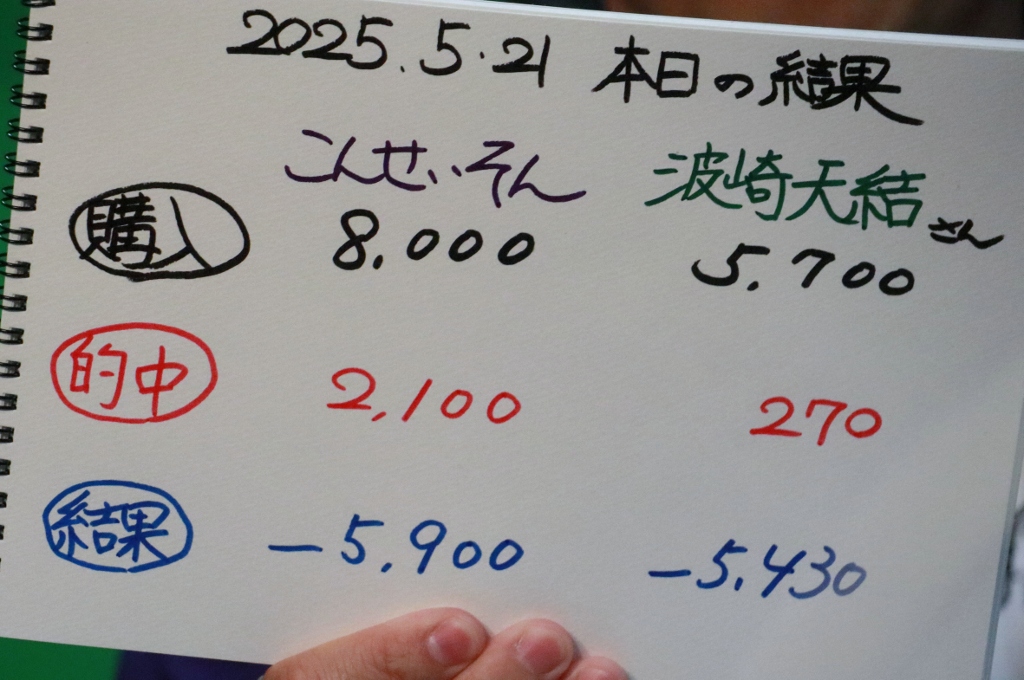 2025.5.21 本日の結果
こんせいそん 波崎天結さん
購入 8,000 5,700
的中 2,100 270
結果 -5,900 -5,430